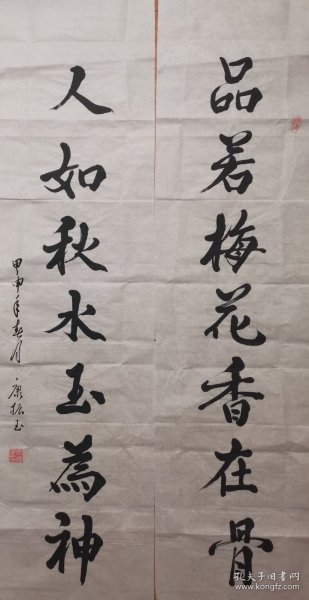 品若梅花香在骨
人如秋水玉為神
甲申年春月 康振玉
孔夫子旧书网